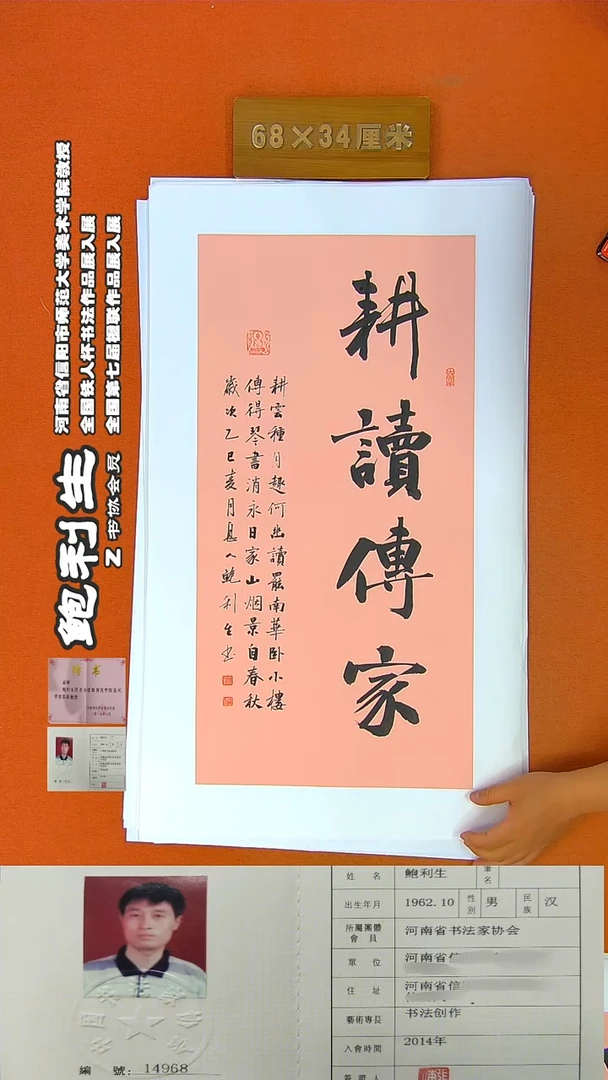 68×34厘米
河南省信阳市师范大学美术学院教授
全国铁人杯书法作品展入展
全国第七届楹联作品展入展
鲍利生
Z 书协会员
耕讀傳家
耕雲種月趣何幽讀罷南華卧小樓
傳得琴書消永日家山烟景自春秋
歲次乙巳亥月
鲍利生书
聘书
姓 名 鲍利生 筆名
出生年月 1962.10 性別 男 民族 汉
所屬團體會員 河南省书法家协会
單 位 河南省信
住 址 河南省信
藝術專長 书法创作
入會時間 2014年
簽證人
編 號: 14968